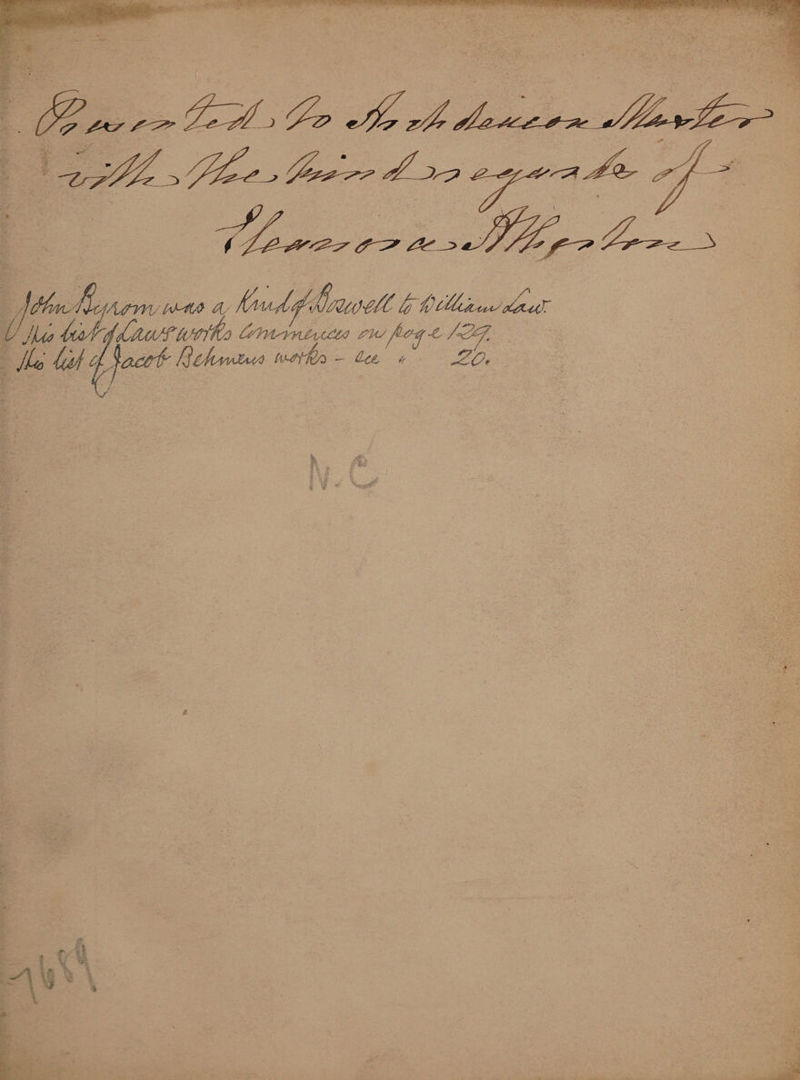 Presented to Archdeacon Master
with the kind regards of
Eleanora Atherton
John Byrom was a Kind of Boswell to William Law.
His list of Law's works commences on page 129.
His list of Jacob Behmens works – see " 20.
N.C
7689